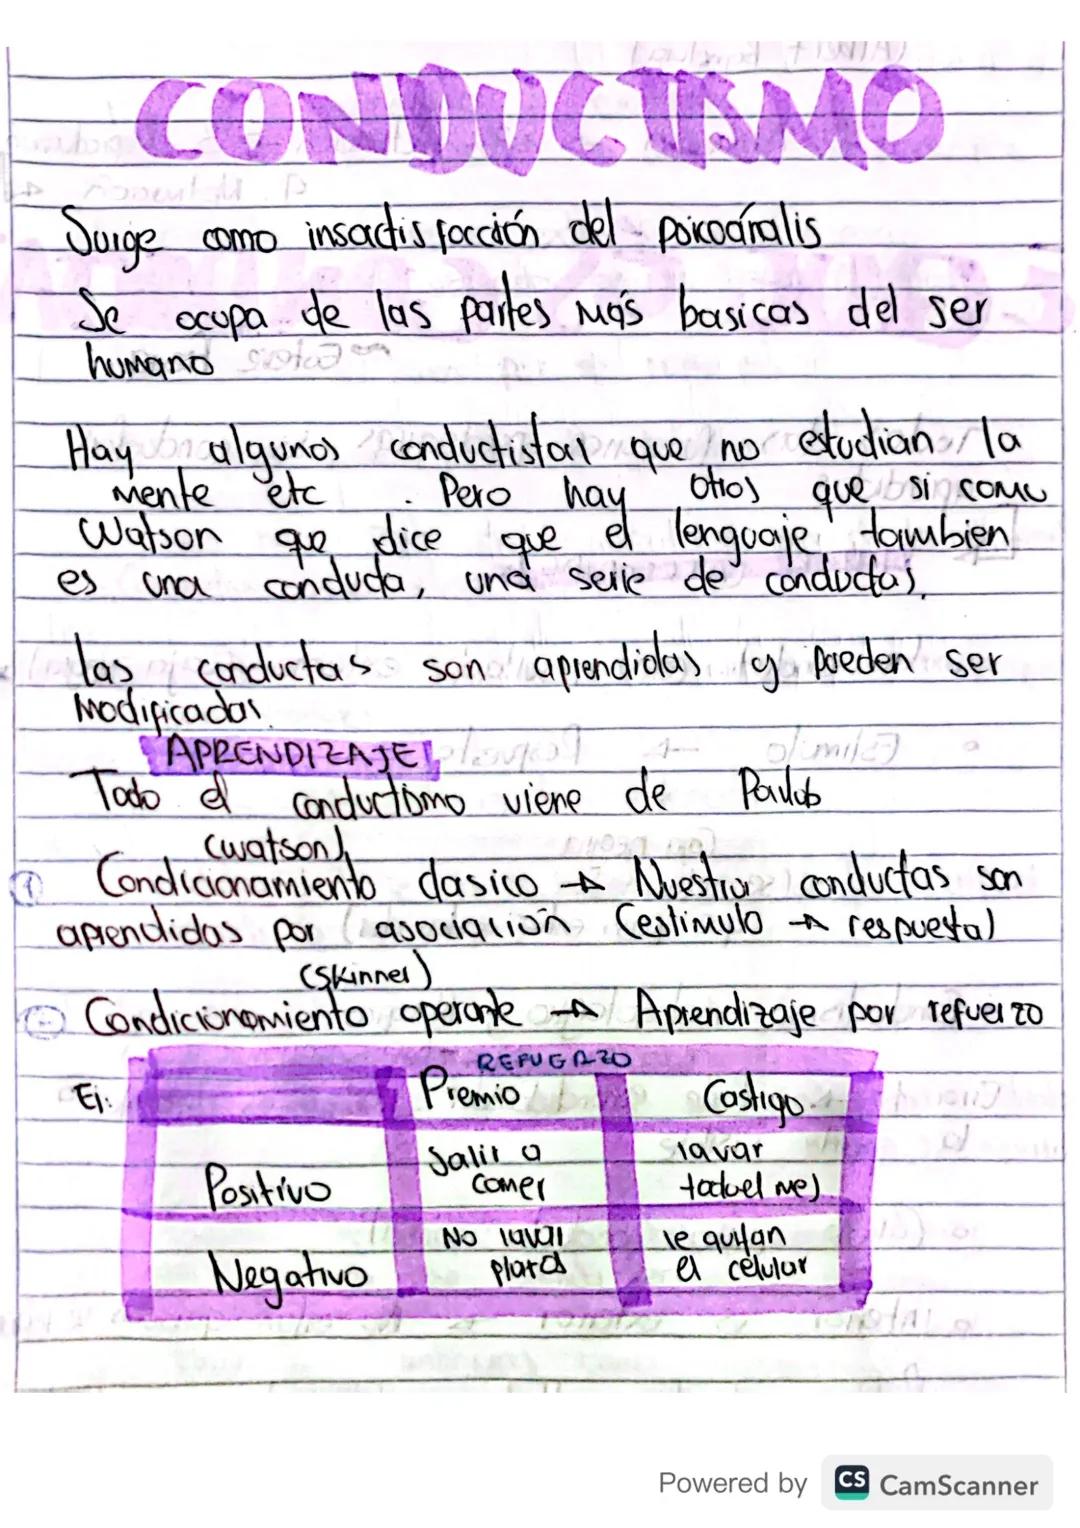 CONDUCTISMO
Surge como insactisfacción del psicoánalis
Se ocupa de las partes más basicas del ser
humano
Hay algunos conductistas que no estudian la
mente etc . Pero hay otros que si como
Watson que dice que el lenguaje tambien
es una conducta, una serie de conductas.
las conductas son aprendidas y pueden ser
Modificadas.
APRENDIZAJE
Todo el conductismo viene de Paulob
(watson)
① Condicionamiento clasico → Nuestras conductas son
aprendidas por asociación (estimulo → respuesta)
(Skinner)
② Condicionomiento operante → Aprendizaje por refuerzo
REFUERZO
Ej: Premio Castigo
Positivo Salir a comer lavar todo el mes
Negativo No lavar platos le quitan el celular
Powered by CS CamScanner